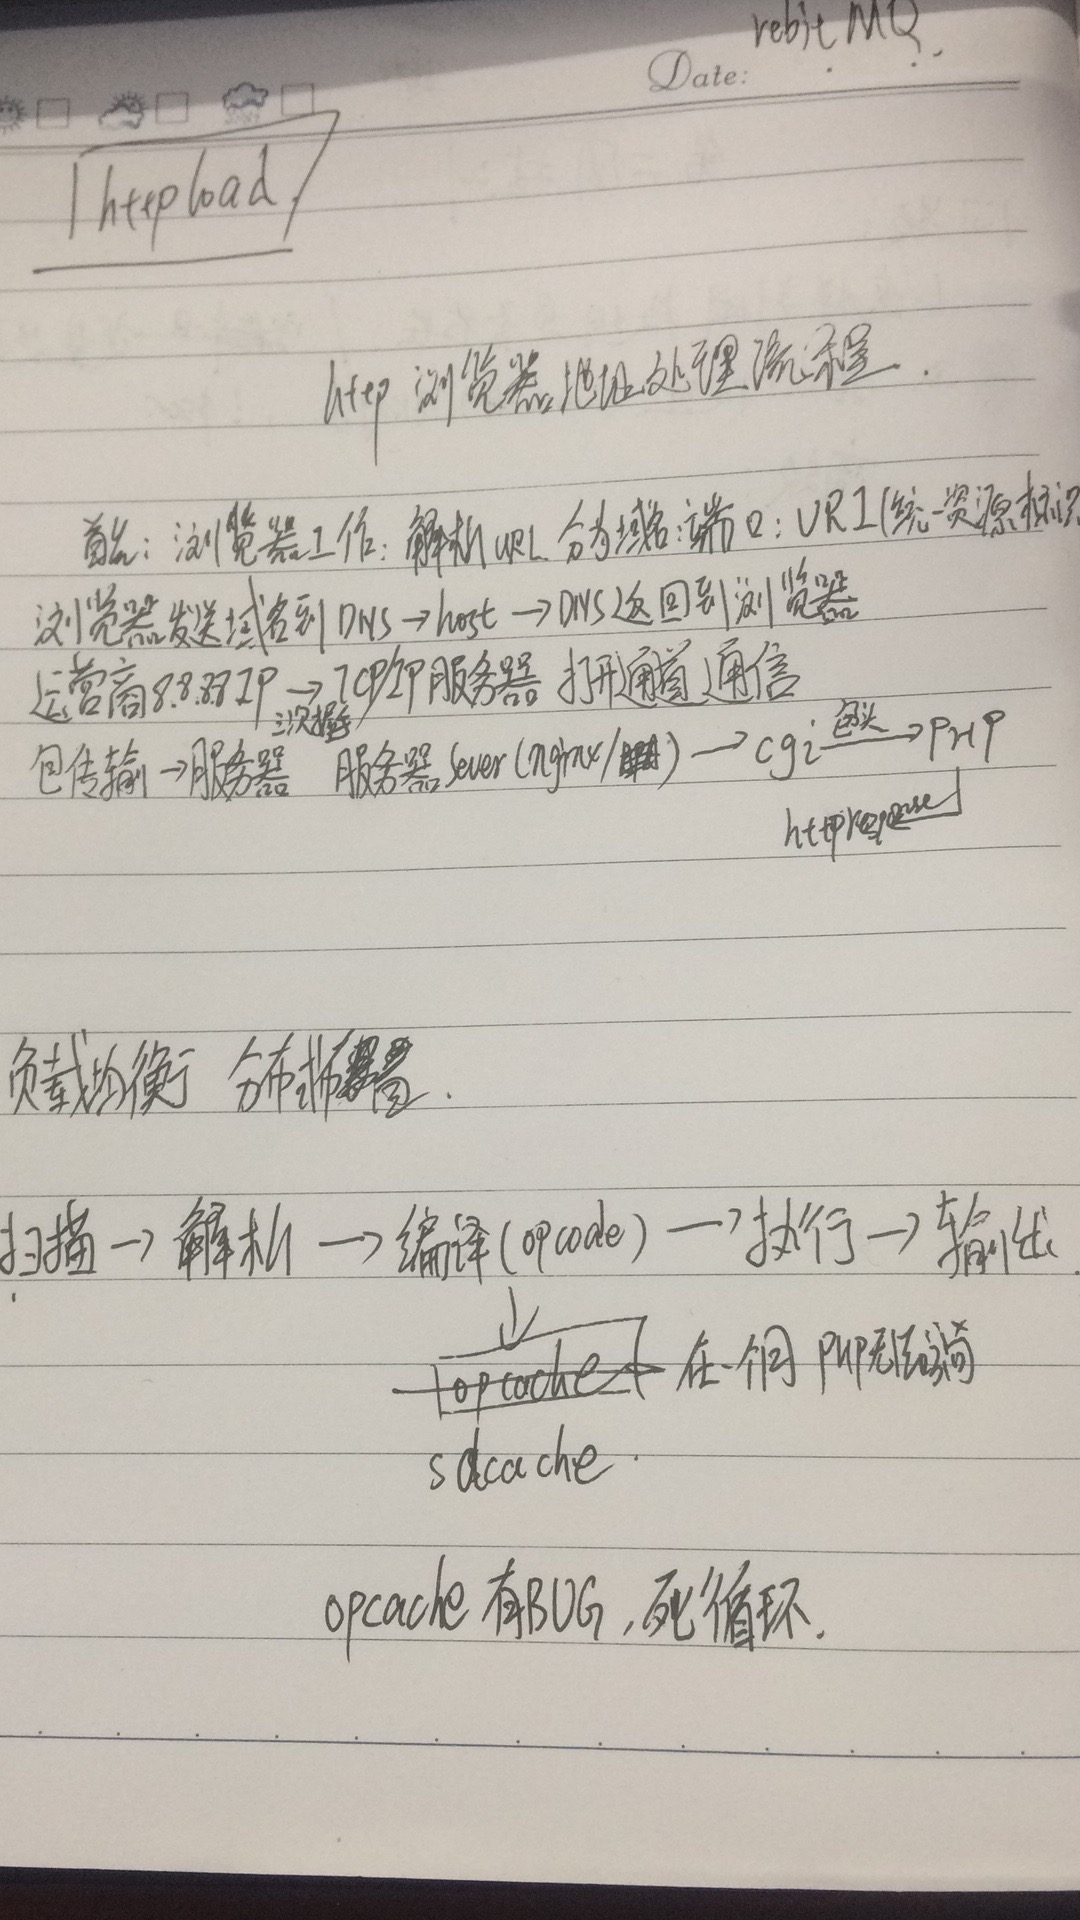 rebit MQ
Date:
http load
http 浏览器地址处理流程.
首先: 浏览器工作: 解析URL 分为域名: 端口: URI(统一资源标识
浏览器发送域名到DNS→host→DNS返回到浏览器
运营商8.8.8.8 IP→TCP/IP服务器 打开通道通信
三次握手
包传输→服务器 服务器sever(nginx/ )→cgi 包头→PHP
http response
负载均衡 分布式部署.
扫描→解析→编译(opcode)→执行→输出.
opcache 在一个 PHP无法
sdcache.
opcache有BUG,死循环.